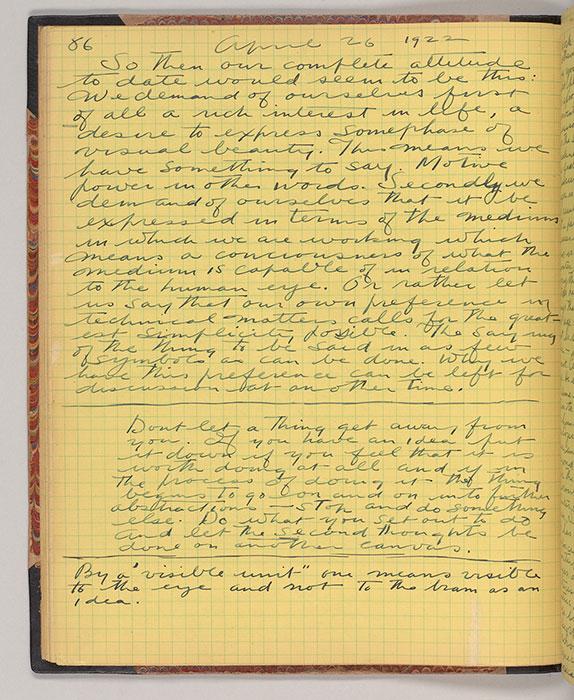 86 April 26 1922
So then our complete attitude
to date would seem to be this:
We demand of ourselves first
of all a rich interest in life, a
desire to express some phase of
visual beauty. This means we
have something to say. Motive
power in other words. Secondly we
demand of ourselves that it be
expressed in terms of the medium
in which we are working which
means a conciousness of what the
medium is capable of in relation
to the human eye. Or rather let
us say that our own preference in
technical matters calls for the great-
est simplicity possible. The saying
of the thing to be said in as few
symbols as can be done. Why we
have this preference can be left for
discussion at another time.
Dont let a thing get away from
you. If you have an idea put
it down if you feel that it is
worth doing at all and if in
the process of doing it the thing
begins to go on and on into further
abstractions — stop and do something
else. Do what you set out to do
and let the second thoughts be
done on another canvas.
By a "visible unit" one means visible
to the eye and not to the brain as an
idea.